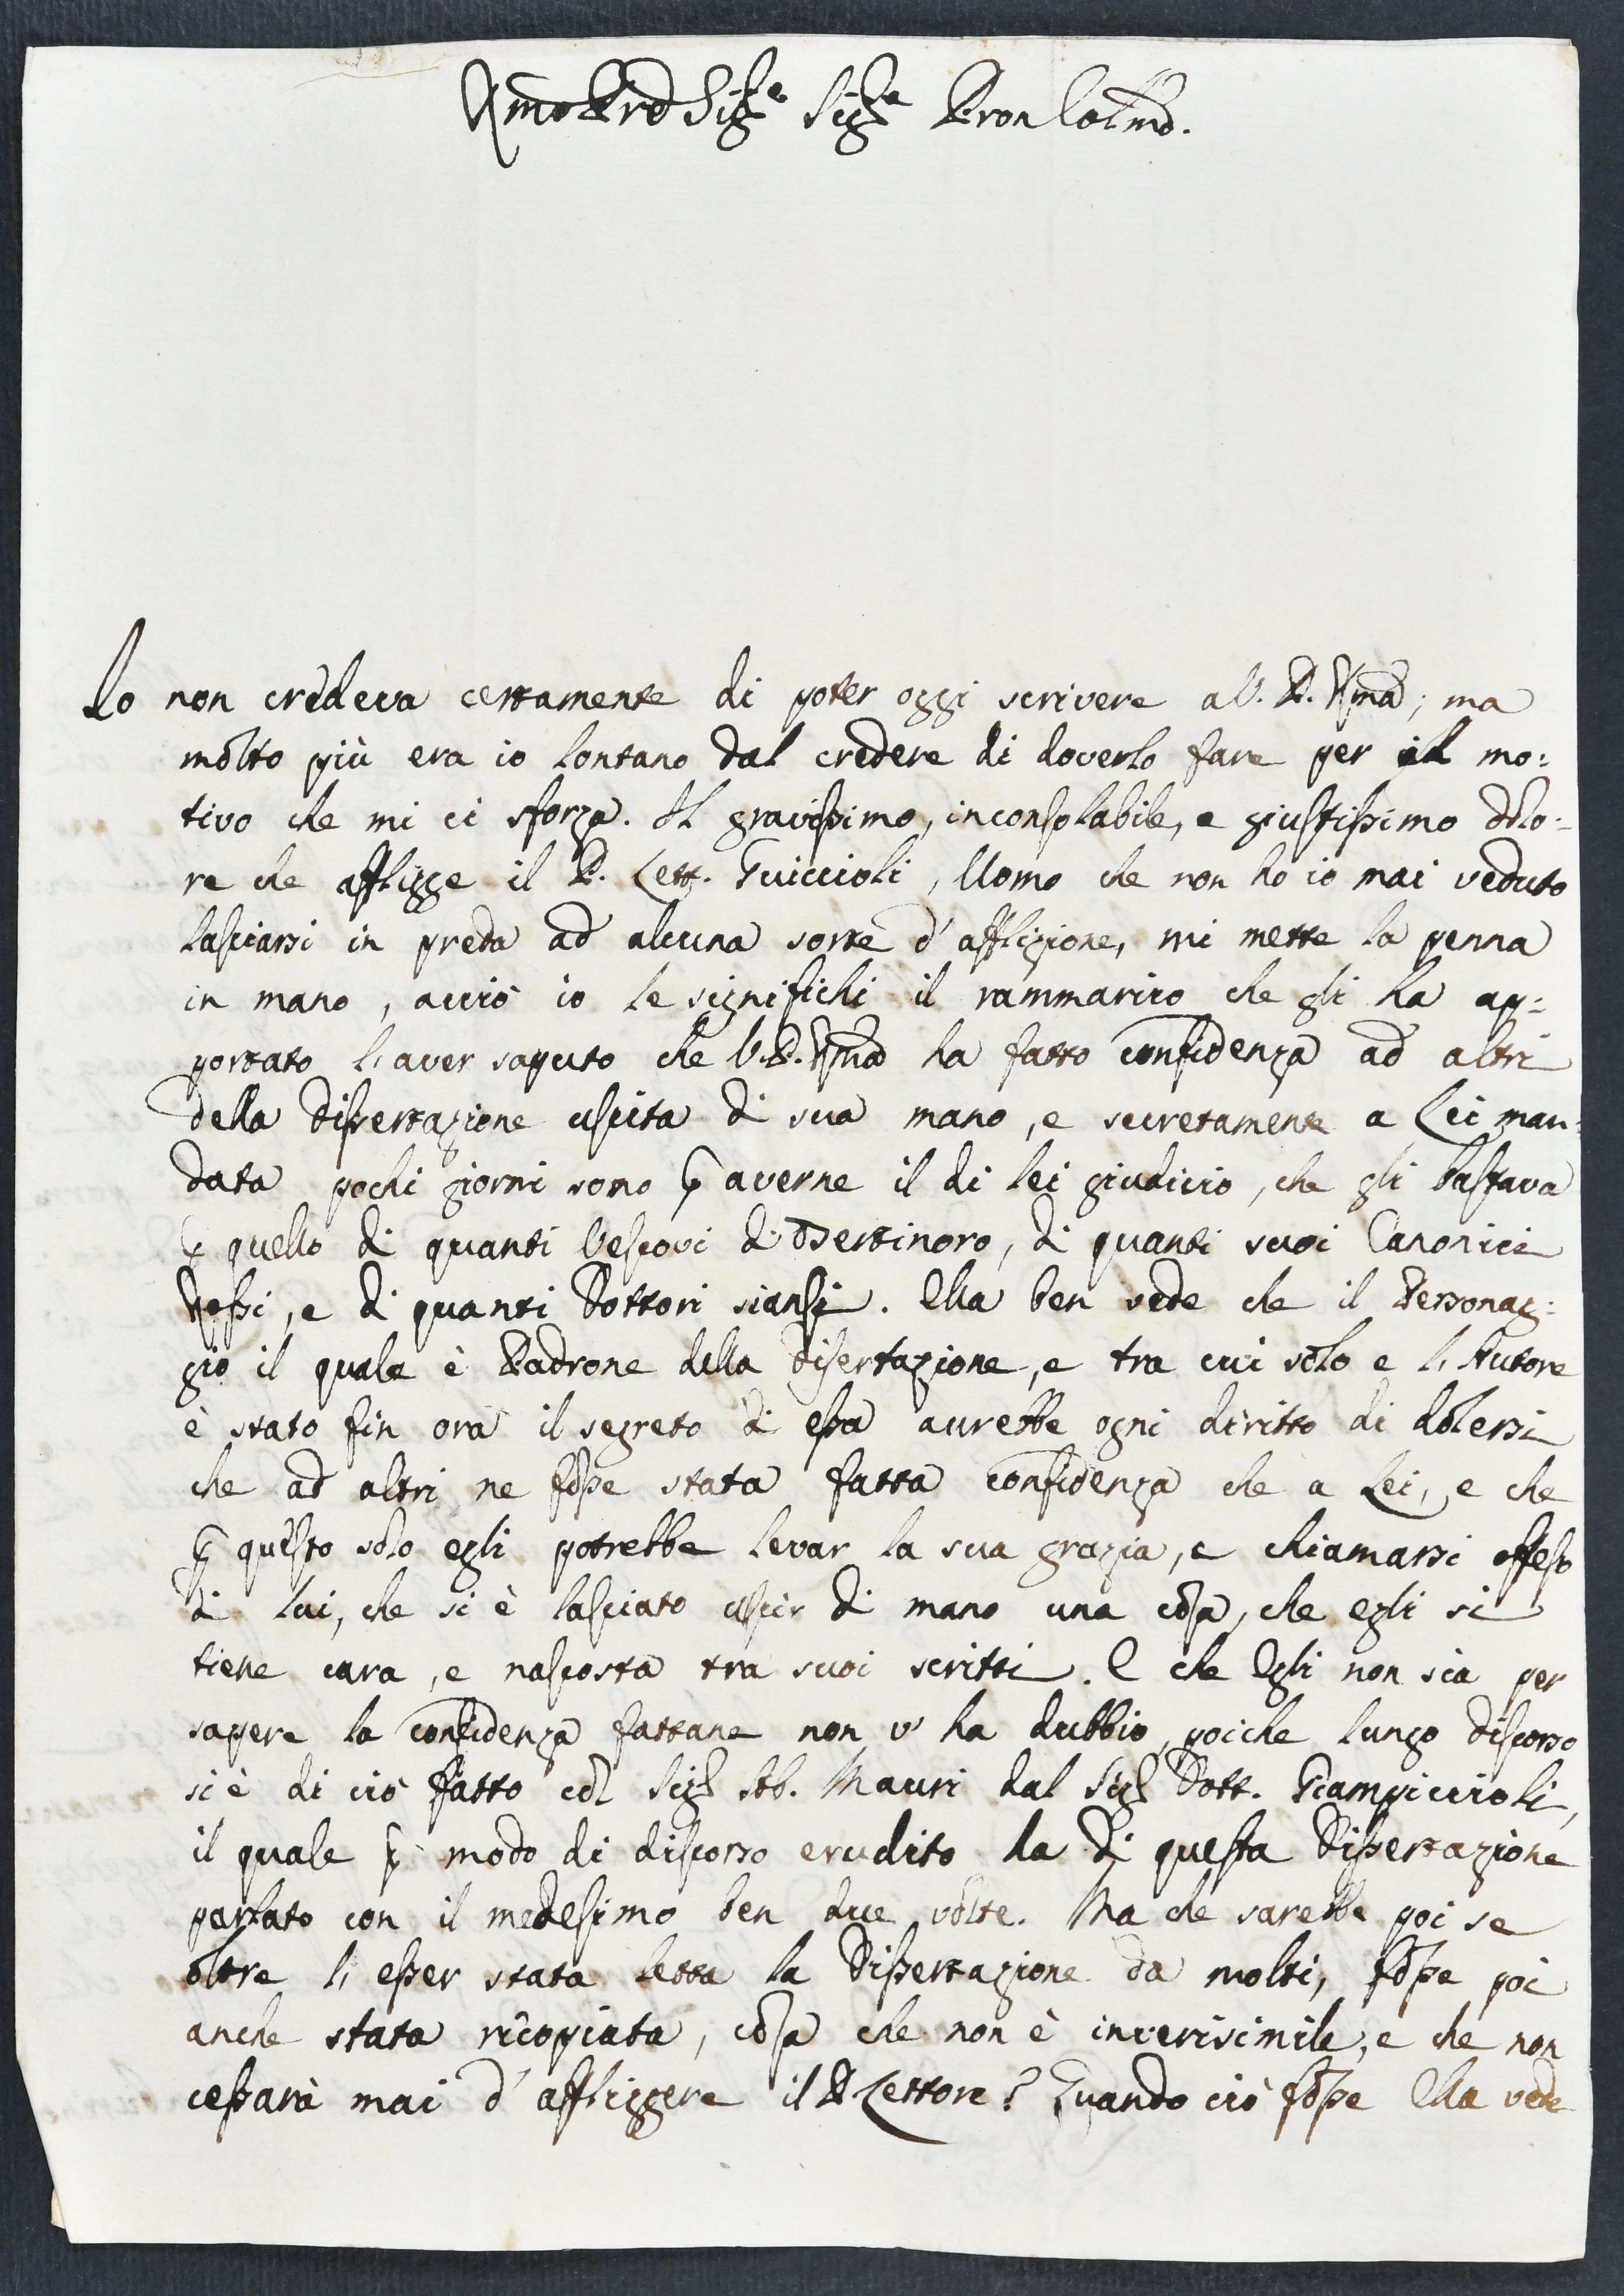 Rmo Prē Sigr̄e Sigr̄e Pron Colmō.
Io non credeva certamente di poter oggi scrivere a V. P. Rmā; ma
molto più era io lontano dal credere di doverlo fare per il mo:
tivo che mi ci sforza. Il gravissimo, inconsolabile, e giustissimo dolo:
re che affligge il P. Lett. Guiccioli, Uomo che non ho io mai veduto
lasciarsi in preda ad alcuna sorte d'afflizione, mi mette la penna
in mano, acciò io le significhi il rammarico che gli ha ap:
portato l'aver saputo che V. P. Rmā ha fatto confidenza ad altri
della dissertazione uscita di sua mano, e secretamente a Lei man:
data pochi giorni sono ꝑ averne il di lei giudicio, che gli bastava
ꝑ quello di quanti Vescovi di Bertinoro, di quanti suoi Canonici
Rossi, e di quanti Dottori siansi. Ella ben vede che il Personag:
gio il quale è Padrone della disertazione, e tra cui solo e l'Autore
è stato fin ora il segreto di essa avrebbe ogni diritto di dolersi
che ad altri ne fosse stata fatta confidenza che a Lei, e che
ꝑ questo solo egli potrebbe levar la sua grazia, e chiamarsi offeso
di lui, che si è lasciato uscir di mano una cosa, che egli si
tiene cara, e nascosta tra suoi scritti. E che Egli non sia per
sapere la confidenza fattane non v'ha dubbio, poiche lungo discorso
si è di ciò fatto col Sigr Ab. Mauri dal Sigr Dott. Giampiccioli,
il quale ꝑ modo di discorso erudito ha di questa Dissertazione
parlato con il medesimo ben due volte. Ma che sarebbe poi se
oltre l'esser stata letta la Dissertazione da molti, fosse poi
anche stata ricopiata, cosa che non è inverisimile, e che non
cessarà mai d'affliggere il P Lettore? Quando ciò fosse Ella vede